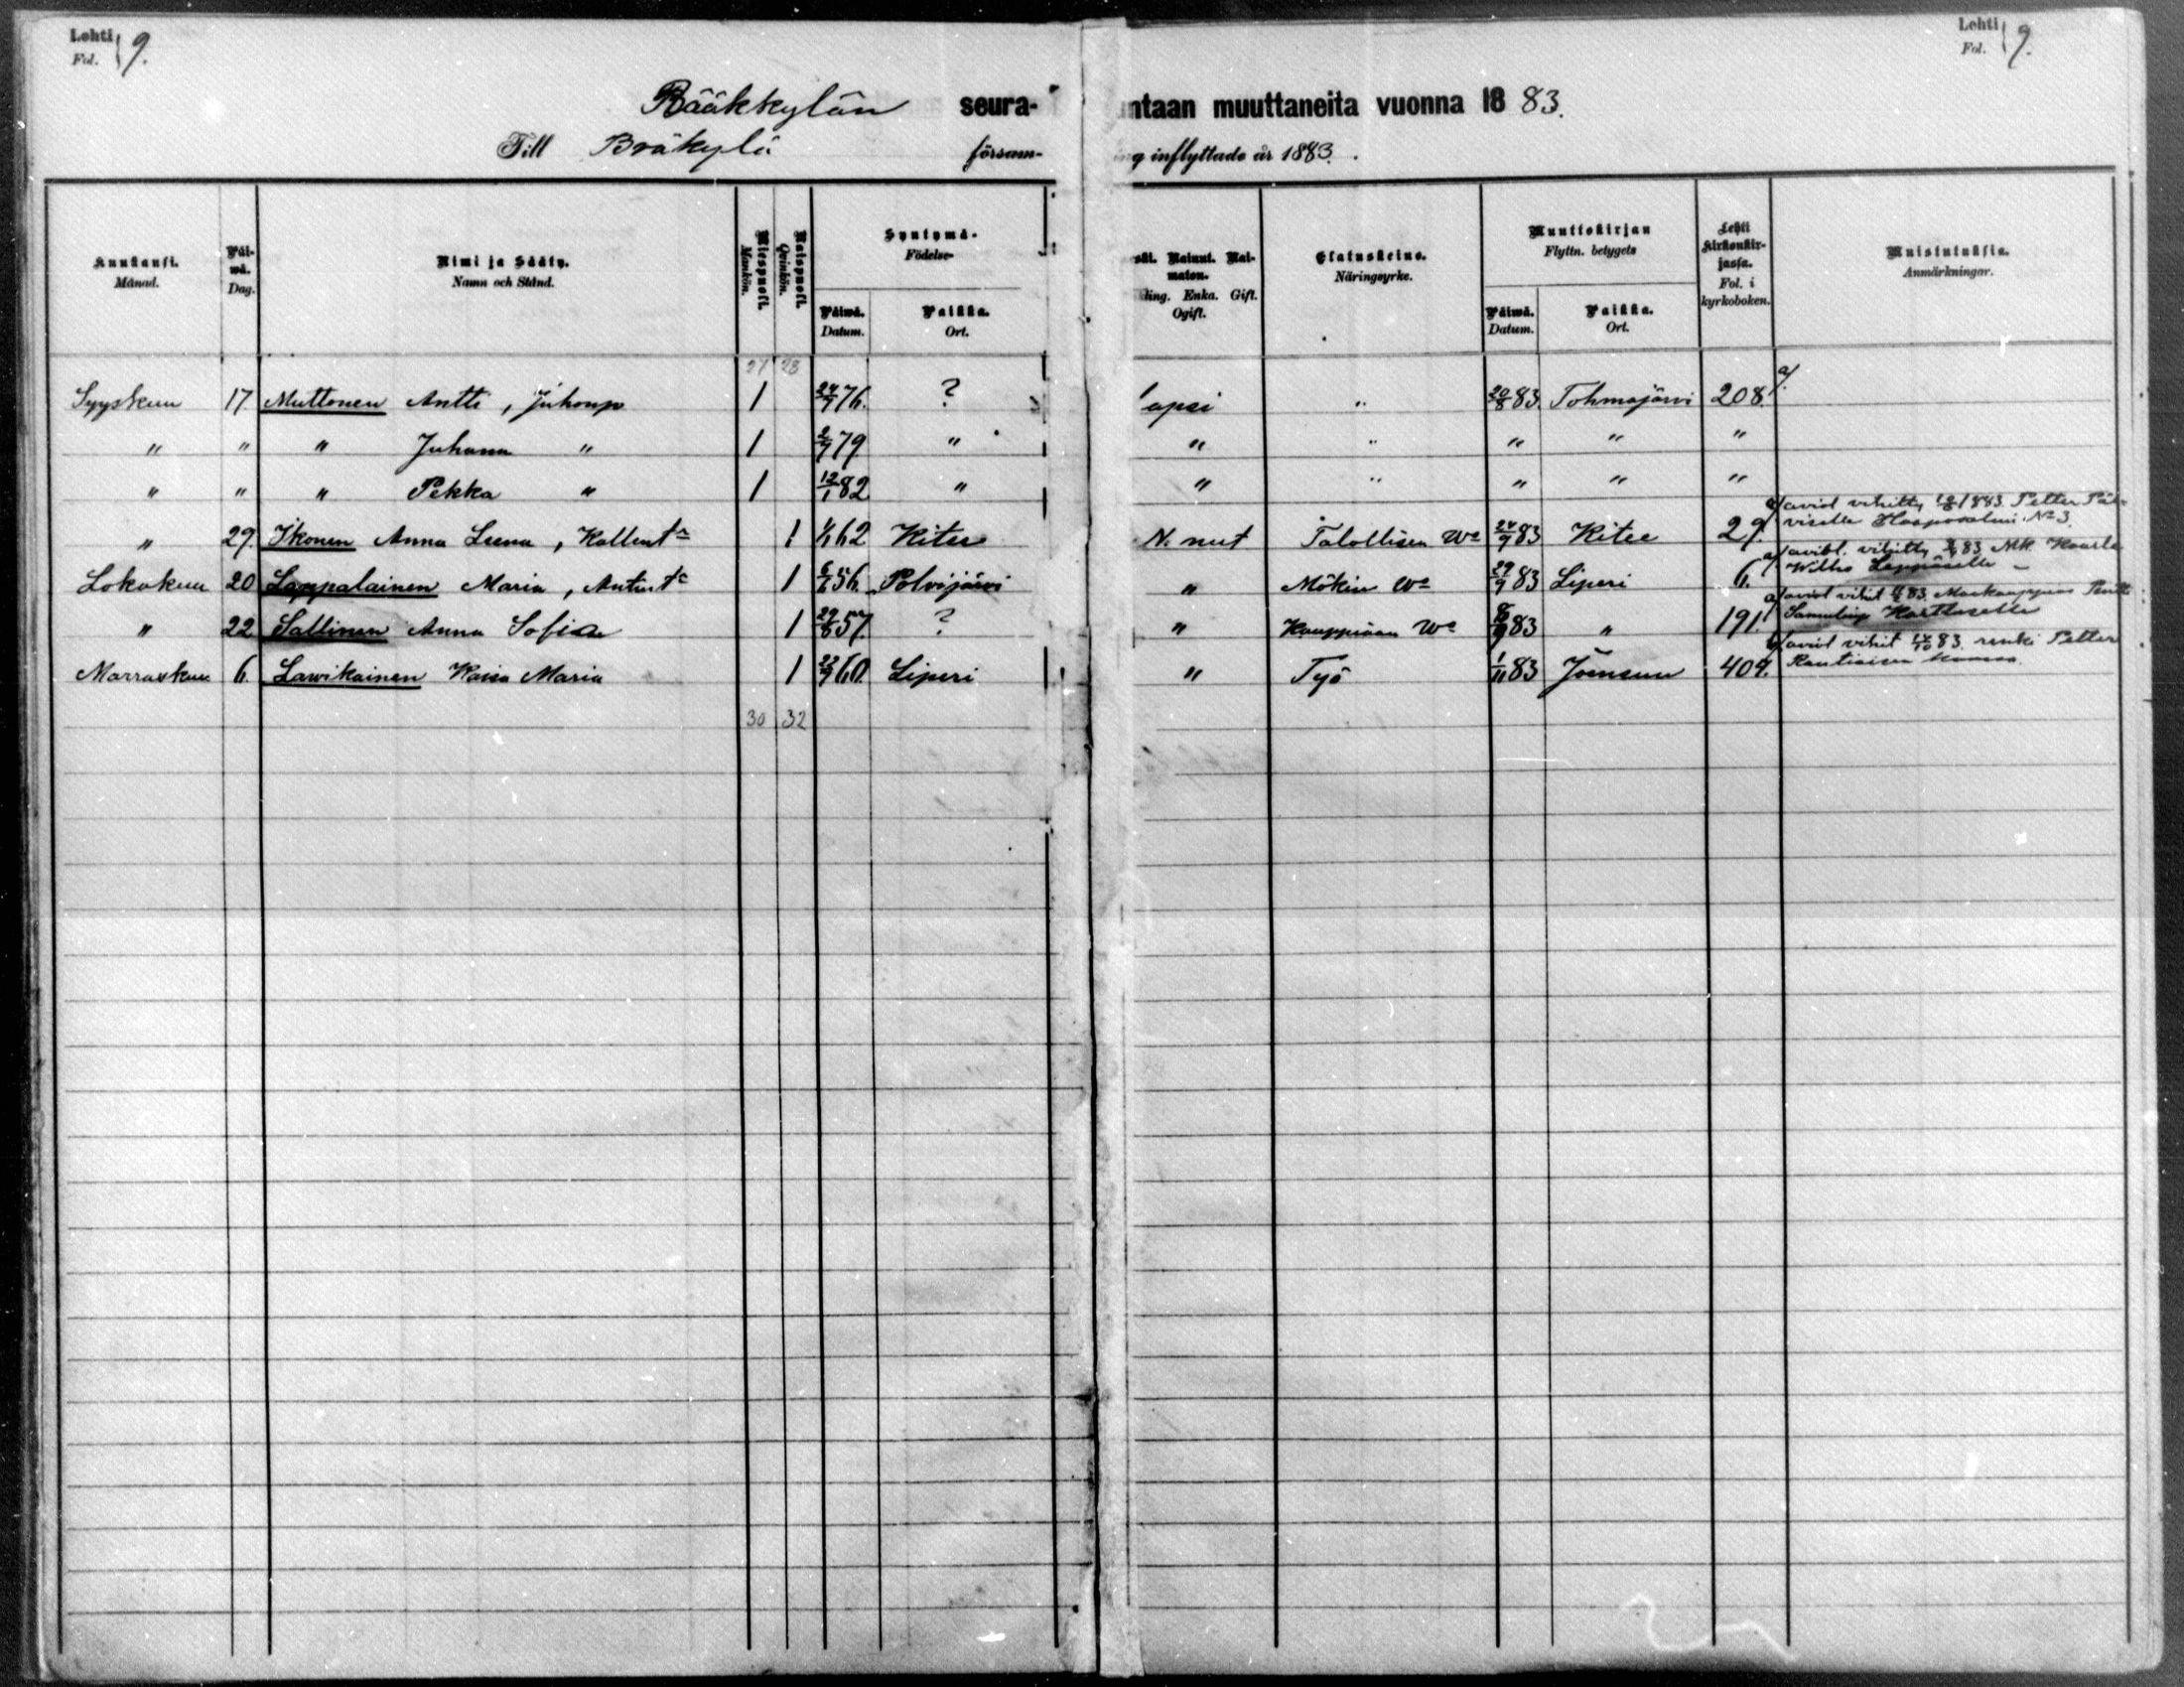 Lehti
Fol. 9.
Lehti
Fol. 9.
Rääkkylän seura- ntaan muuttaneita vuonna 18 83.
Till Bräkylä försam- ng inflyttade år 1883.
Kuukausi.
Månad.
Päi-
wä.
Dag.
Nimi ja Sääty.
Namn och Stånd.
Miespuoli.
Mankön.
Naispuoli.
Qvinkön.
Syntymä-
Födelse-
Päiwä.
Datum.
Paikka.
Ort.
ski. Nainut. Nai-
maton.
ling. Enka. Gift.
Ogift.
Elatuskeino.
Näringsyrke.
Muuttokirjan
Flyttn. betygets
Päiwä.
Datum.
Paikka.
Ort.
Lehti
kirkonkir-
jassa.
Fol. i
kyrkoboken.
Muistutuksia.
Anmärkningar.
27 28
Syyskuu 17. Muttonen Antti, Juhonp 1 24/7 76. ? lapsi " 20/8 83. Tohmajärvi 208. a/.
" " " Juhana " 1 2/9 79 " " " " " "
" " " Pekka " 1 12/1 82 " " " " " "
" 29. Ikonen Anna Leena, Kallent 1 1/1 62 Kitee N. nut Talollisen We 24/9 83 Kitee 29.
a/ aviol vihitty 1883. Petter
viselle Haapasalmi No 3.
Lokakuu 20 Lappalainen Maria, Antint 1 6/6 56. Polvijärvi " Mökin We 29/9 83 Liperi 6.
a/ aviol. vihitty 83 Mk. Kaarle
Wilho
" 22 Sallinen Anna Sofia 1 29/8 57. ? " Kauppiaan We 8/9 83 " 191.
a/ aviol vihit 83. Maakauppias
Marraskuu 6. Lawikainen Kaisa Maria 1 23/9 60. Liperi " Työ 1/11 83 Joensuu 409.
aviol vihit 83. renki Petter
Rautiaisen kanssa.
30 32